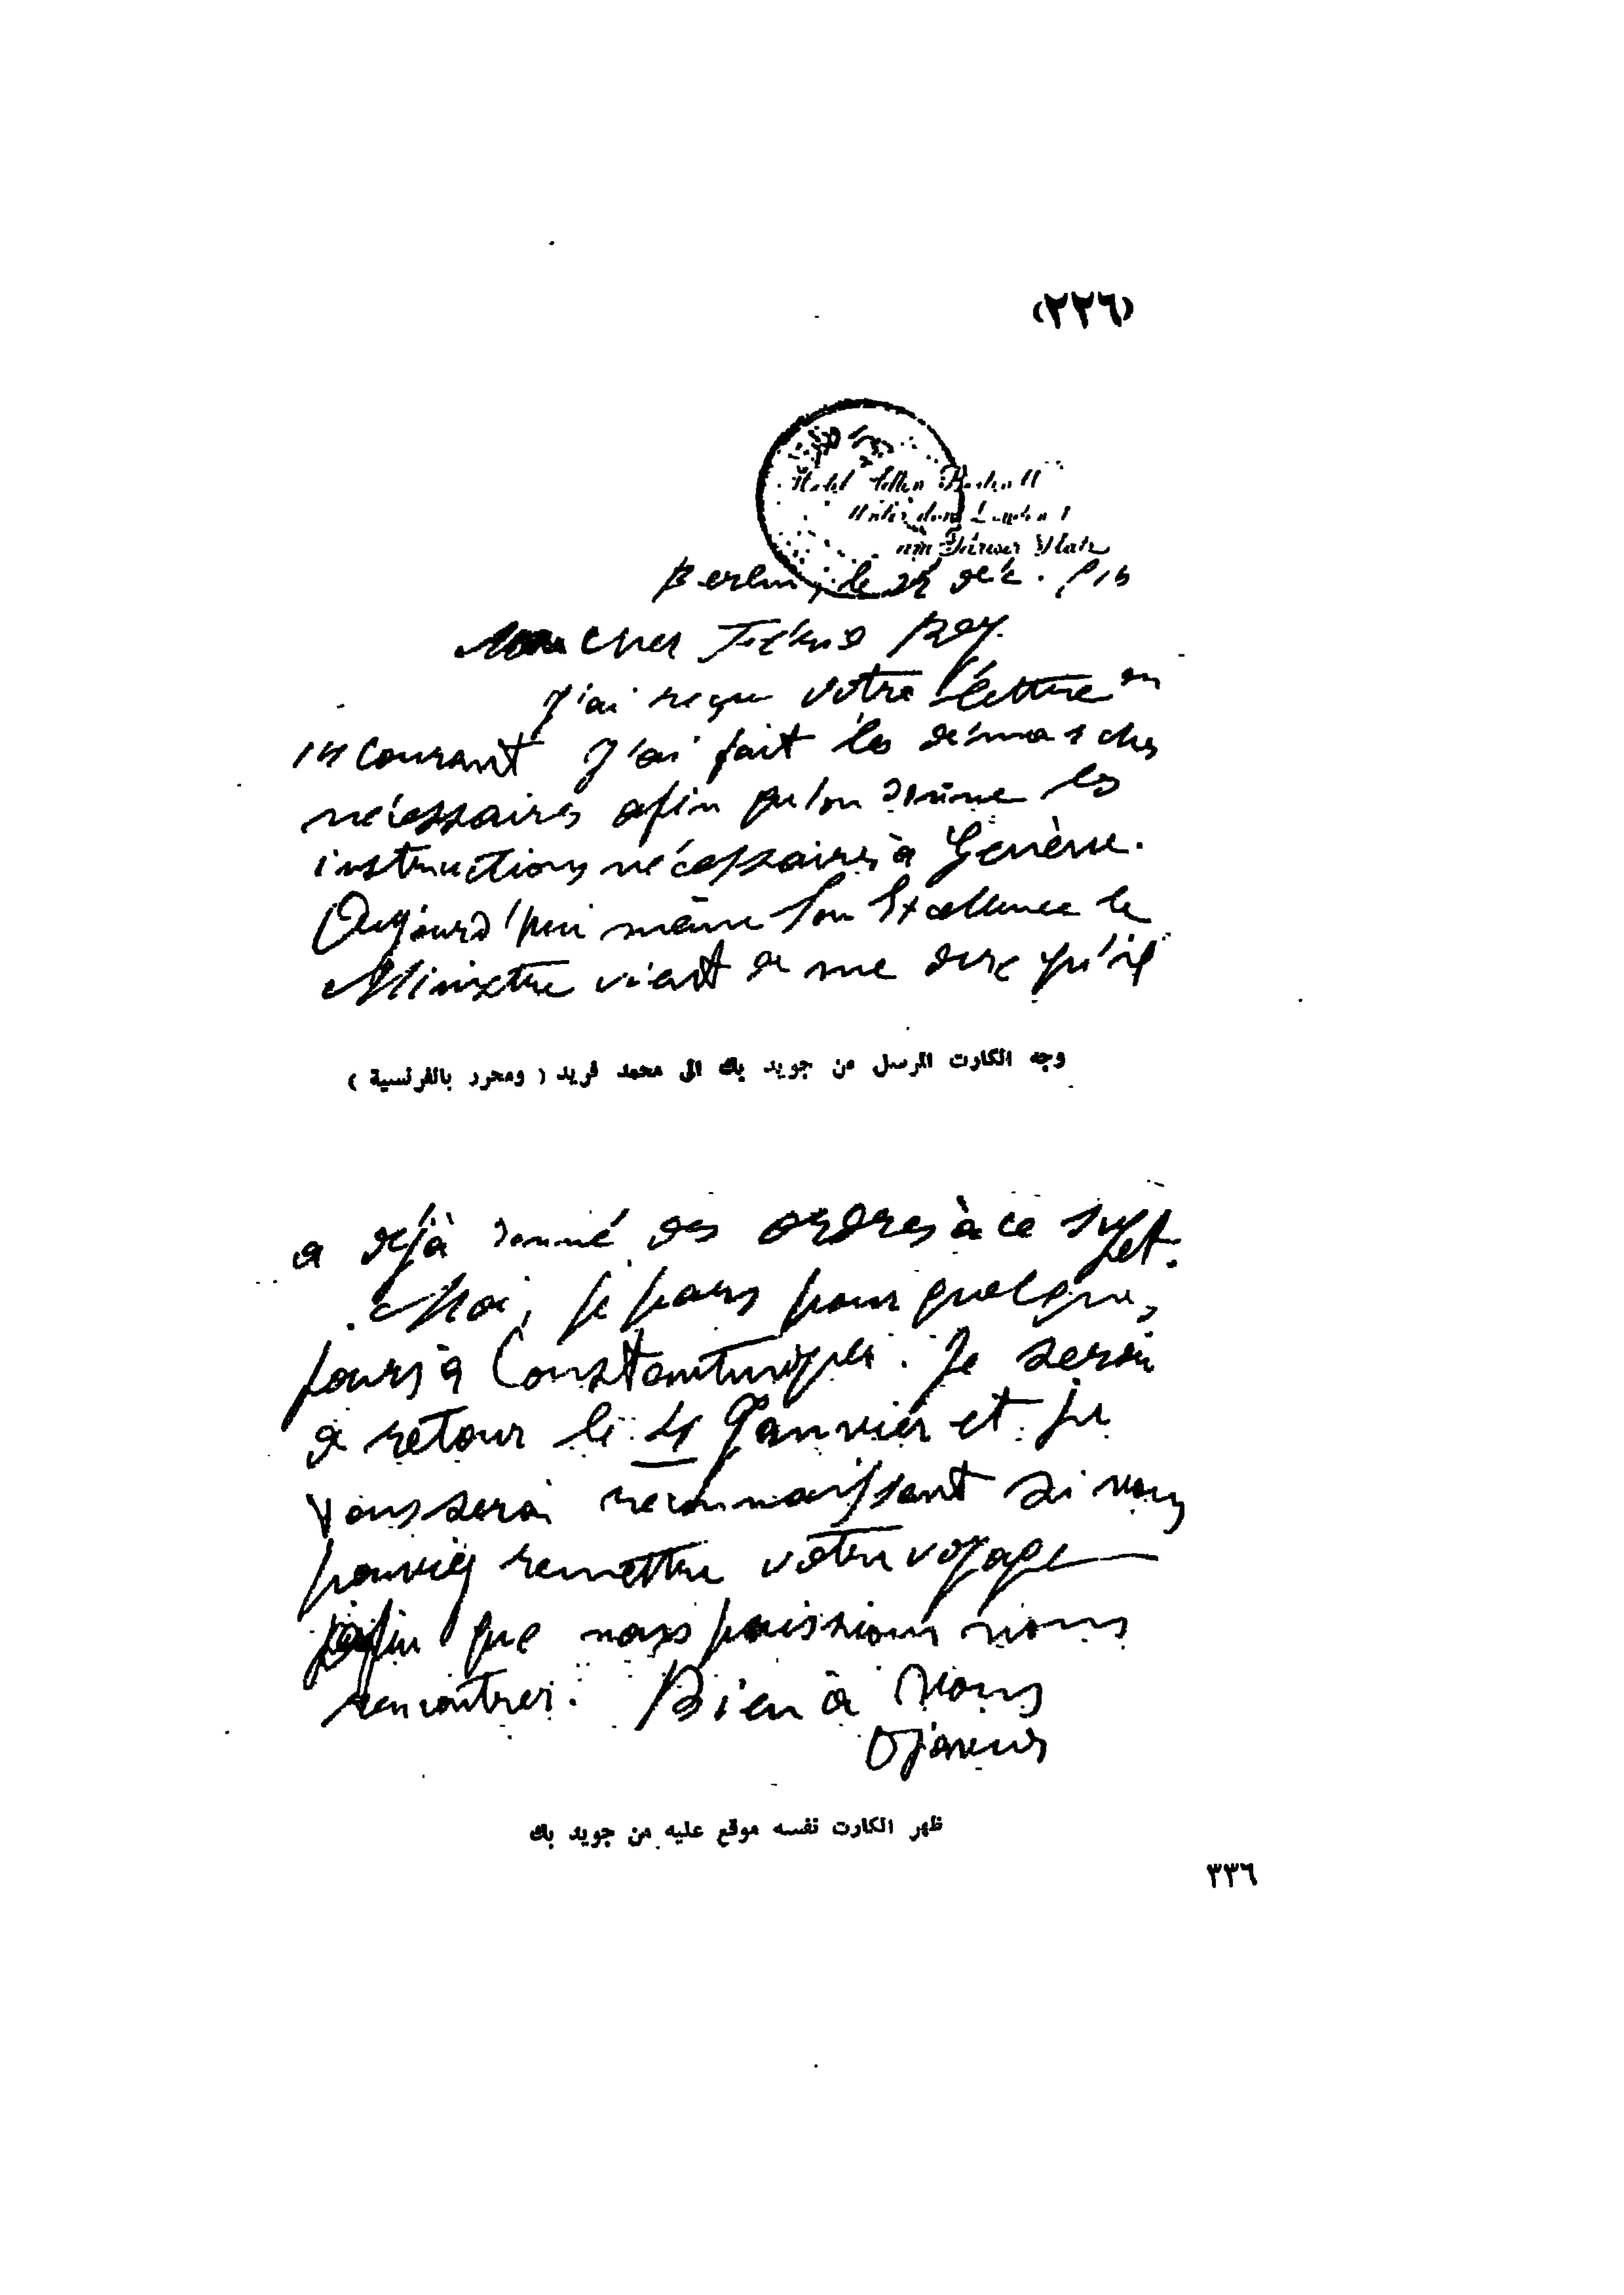 (٢٢٦)
Hotel
Unter den
am Pariser Platz
Berlin, le Déc.
Mon cher Férid Bey.
J'ai reçu votre lettre du
courant J'ai fait les démarches
nécessaires afin qu'on donne les
instructions nécessaires à Genève.
Aujourd'hui même Son Excellence le
Ministre vient de me dire qu'il
وجه الكارت المرسل من جويد بك الى محمد فريد ( ومحرر بالفرنسية )
a déjà donné des ordres à ce sujet.
Moi, je pars pour quelques
jours à Constantinople. Je serai
de retour le Janvier et je
vous serai reconnaissant si vous
pouviez remettre votre voyage
afin que nous puissions nous
rencontrer. Bien à Vous
Djavid
ظهر الكارت نفسه موقع عليه من جويد بك
٣٣٦